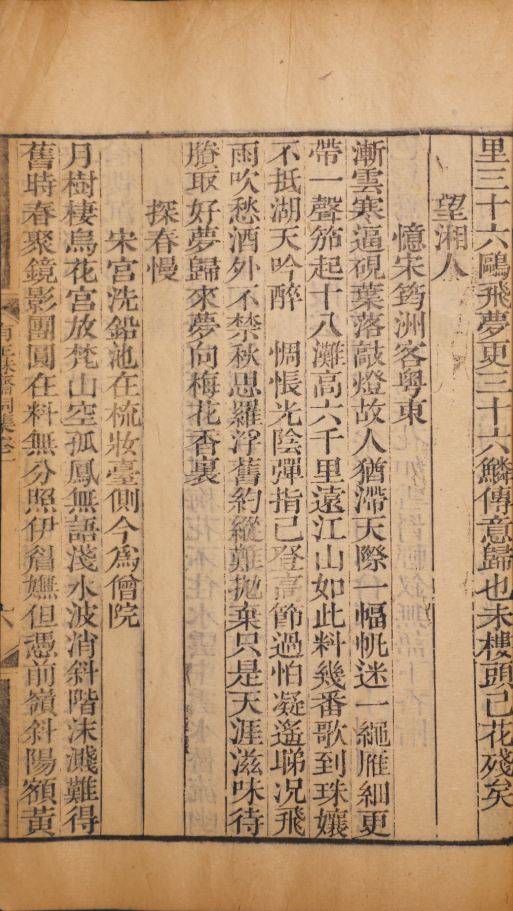 里三十六鷗飛夢更三十六鱗傳意歸也未樓頭已花殘矣
望湘人
憶宋筠洲客粤東
漸雲寒逼硯葉落敲燈故人猶滯天際一幅帆迷一繩雁細更
帶一聲笳起十八灘高六千里遠江山如此料幾番歌到珠孃
不抵湖天吟醉　惆悵光陰彈指已登高節過怕凝遙睇况飛
雨吹愁酒外不禁秋思羅浮舊約縱難抛棄只是天涯滋味待
賸取好夢歸來夢向梅花香裏
探春慢
宋宫洗鉛池在梳妝臺側今爲僧院
月樹棲烏花宫放梵山空孤鳳無語淺水波消斜階沫濺難得
舊時春聚鏡影團圓在料無分照伊眉嫵但憑前嶺斜陽額黄
有正味齋詞集卷一
六